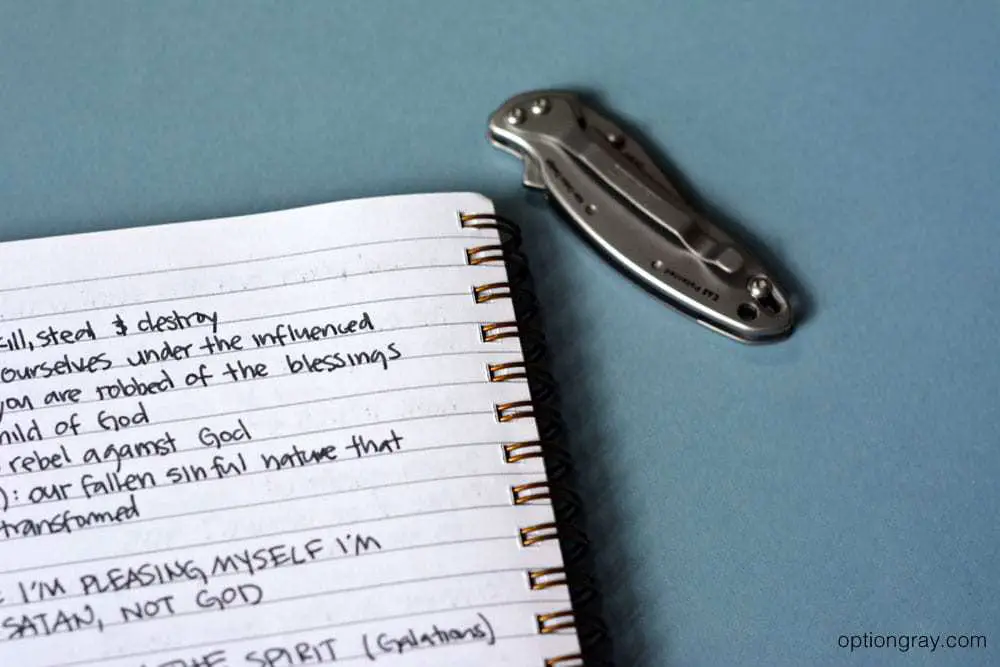 kill, steal & destroy
ourselves under the influenced
you are robbed of the blessings
child of God
rebel against God
): our fallen sinful nature that
transformed
I'M PLEASING MYSELF I'M
SATAN, NOT GOD
THE SPIRIT (Galations)
optiongray.com